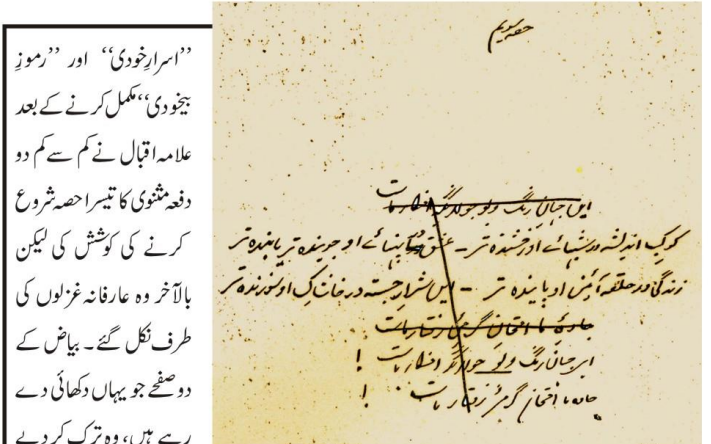 ’’اسرارِخودی‘‘ اور ’’رموزِ
بیخودی‘‘مکمل کرنے کے بعد
علامہ اقبال نے کم سے کم دو
دفعہ مثنوی کا تیسرا حصہ شروع
کرنے کی کوشش کی لیکن
بالآخر وہ عارفانہ غزلوں کی
طرف نکل گئے۔ بیاض کے
دو صفحے جو یہاں دکھائی دے
رہے ہیں، وہ ترک کر دیے
حصہ سویم
ایں جہانِ رنگ و بو جولانگہِ افکار ماست
کوکبِ اندیشہ در شبہائے او رخشندہ تر - عشق در پہنائے او جویندہ تر یابندہ تر
زندگی در حلقہ آئینِ او پایندہ تر - ایں شرارِ جستہ در خاشاکِ او سوزندہ تر
جادہ ہا گرمئ رفتار ماست
ایں جہانِ رنگ و بو جولانگہِ افکار ماست !
جادہ ہا گرمئ رفتار ماست !